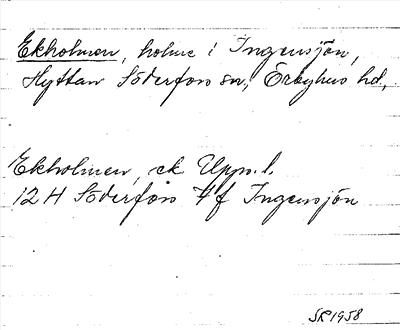 Ekholmen, holme i Ingensjön,
Hyttan Söderfors sn, Örbyhus hd,
Ekholmen, ek Upps. l.
12 H Söderfors 7 f Ingensjön
SR 1958